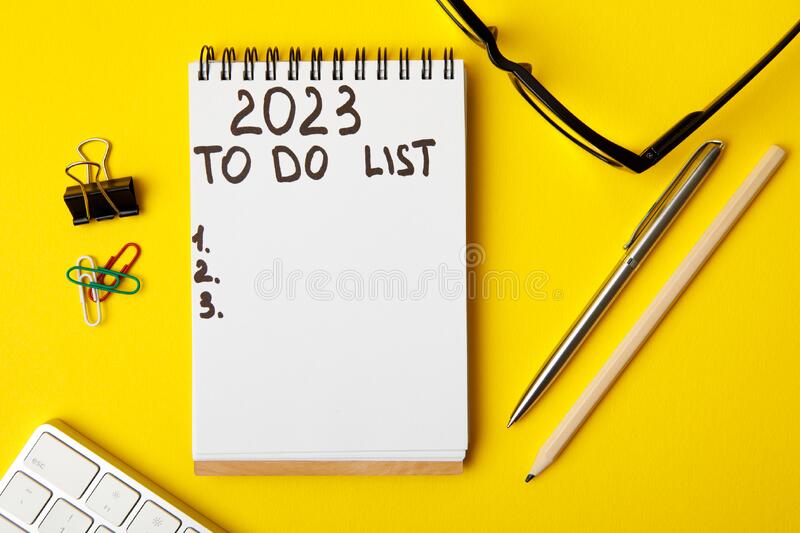 2023
TO DO LIST
1.
2.
3.
dreamstime
esc